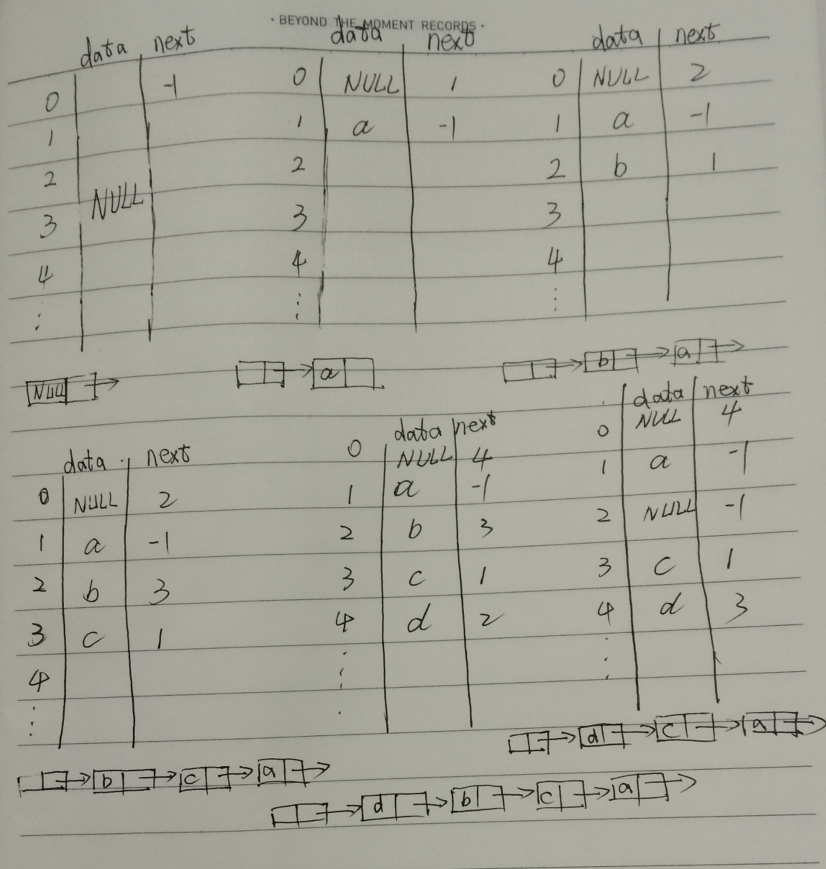 · BEYOND THE MOMENT RECORDS ·
data next data next data next
0 -1 0 NULL 1 0 NULL 2
1 1 a -1 1 a -1
2 2 2 b 1
NULL
3 3 3
4 4 4
⋮ ⋮ ⋮
NULL a b a
data next
0 NULL 2
1 a -1
2 b 3
3 c 1
4
⋮
data next
0 NULL 4
1 a -1
2 b 3
3 c 1
4 d 2
⋮
data next
0 NULL 4
1 a -1
2 NULL -1
3 c 1
4 d 3
⋮
d c a
b c a
d b c a